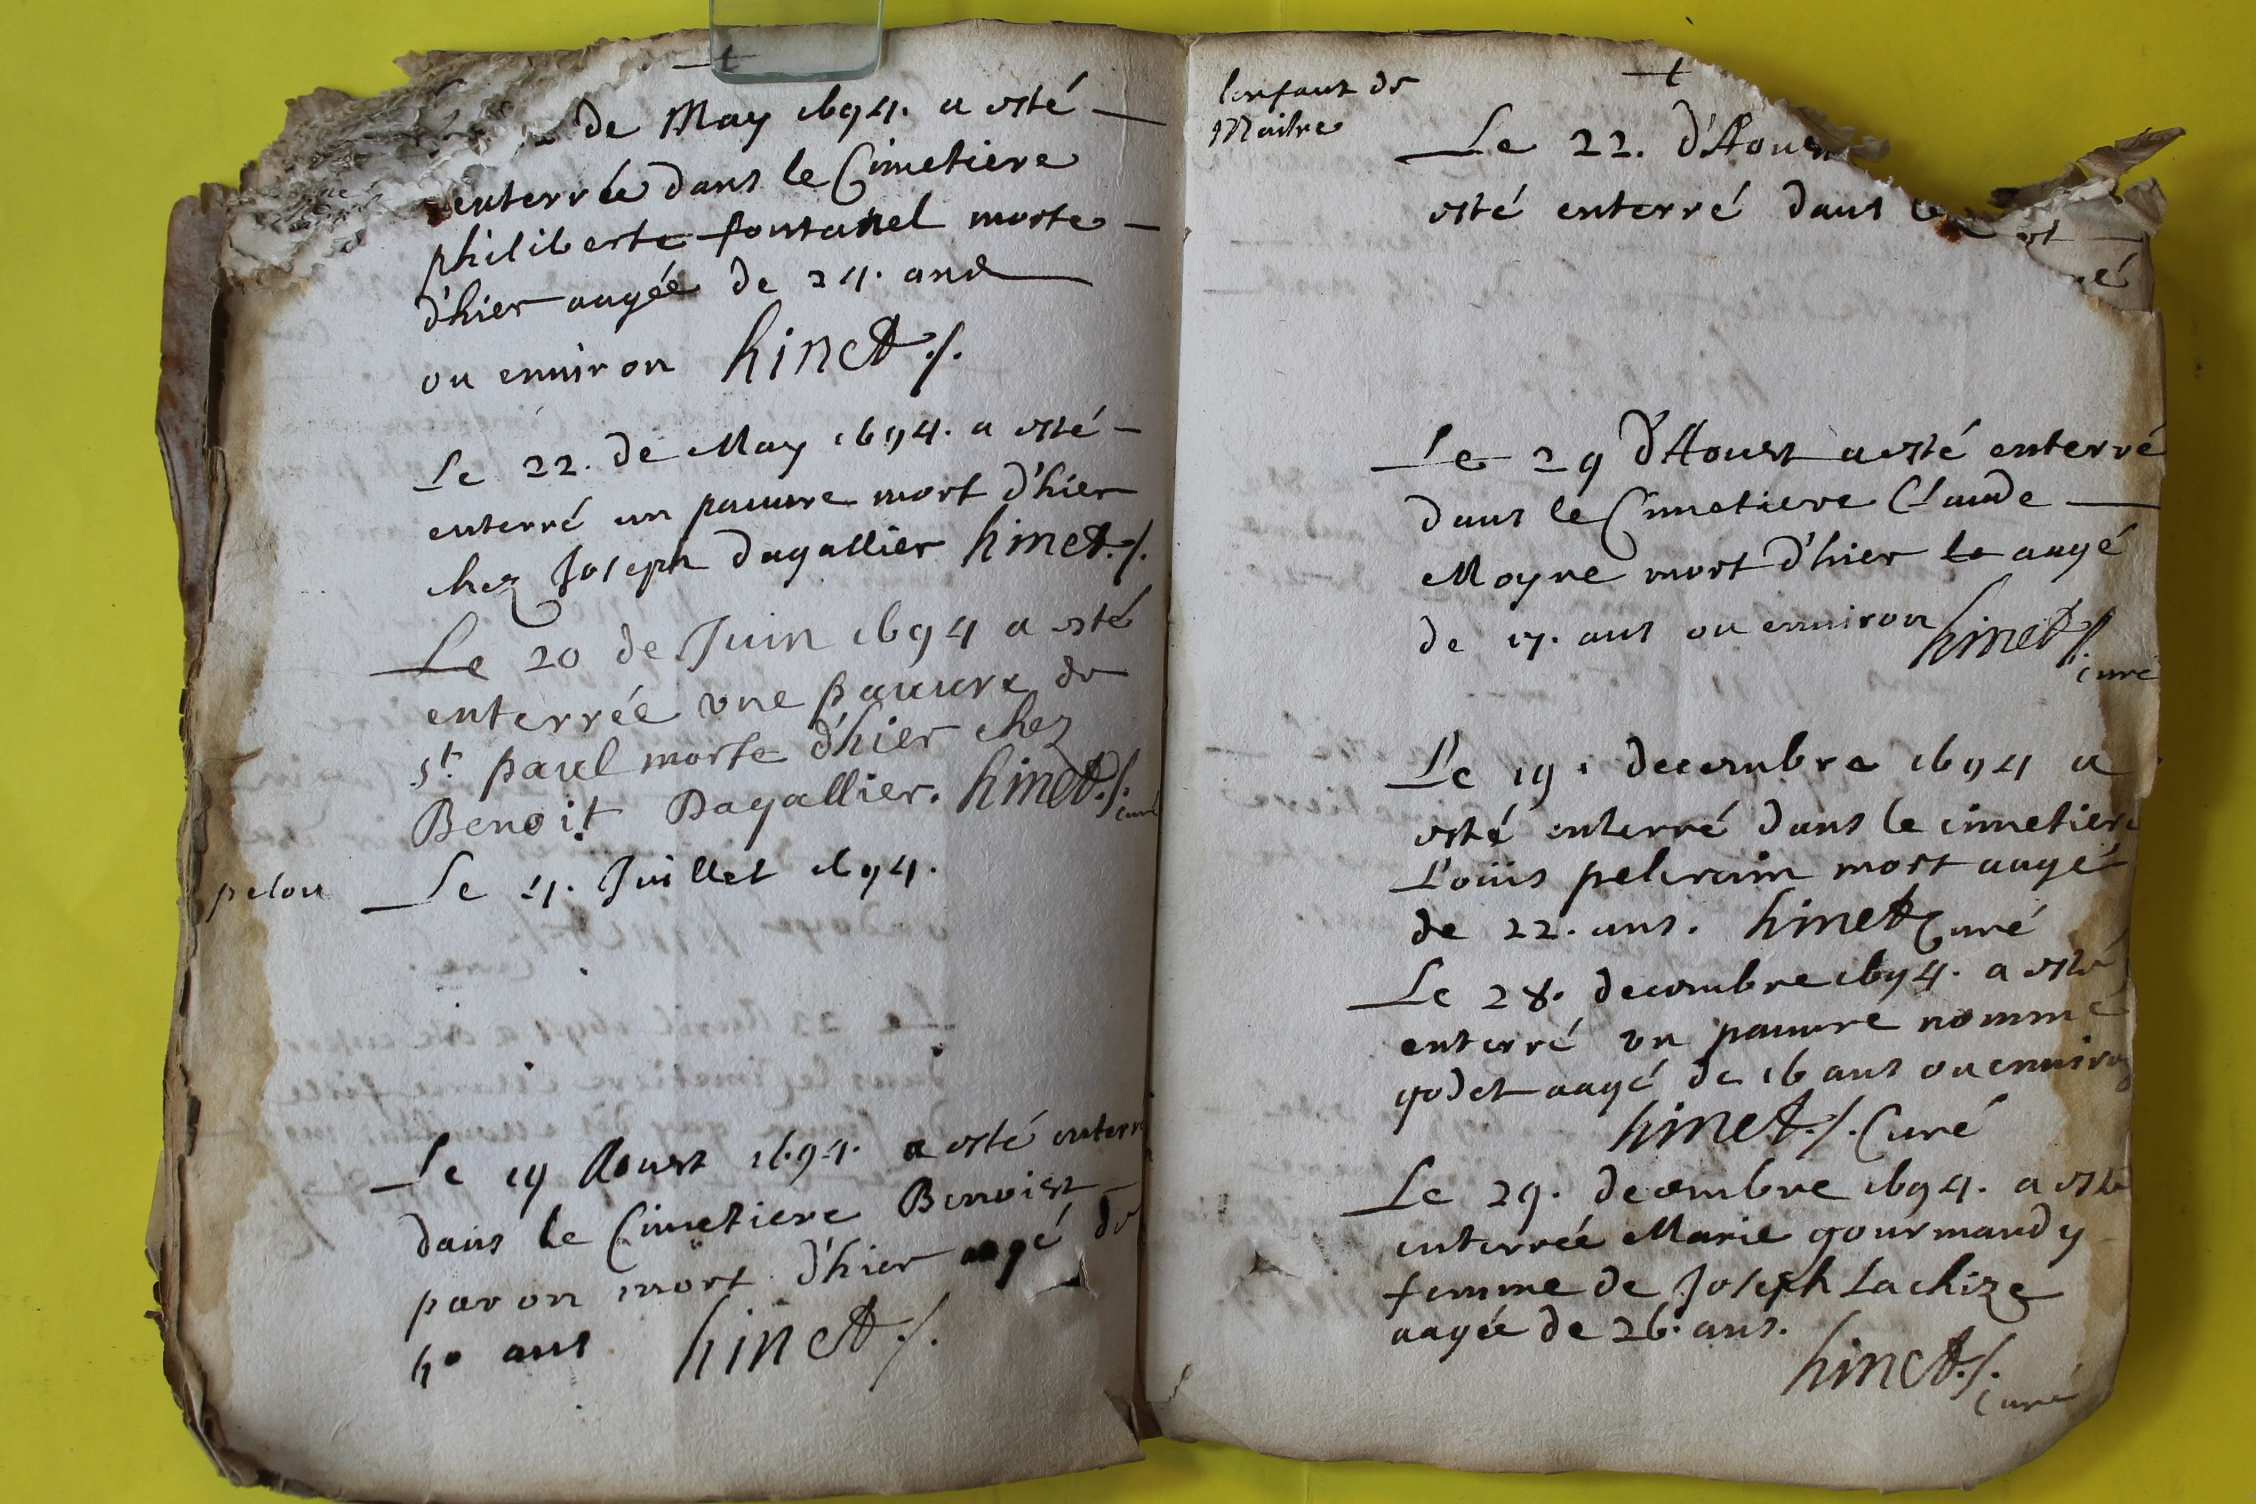 de May 1694. a esté
enterrée dans le Cimetiere
philiberte fontanel morte
d'hier aagée de 24. ans
ou enuiron hinet
Le 22. de May 1694. a esté
enterré un pauure mort d'hier
chez Joseph dagallier hinet
Le 20 de Juin 1694 a esté
enterrée vne pauure de
st. paul morte d'hier chez
Benoit Dagallier. hinet
curé
pelou Le 4. Juillet 1694.
Le 19 Aoust 1694. a esté enterr
dans le Cimetiere Benoist
paron mort d'hier aagé de
40 ans hinet
l'enfant de
Maitre
Le 22. d'Aoust
esté enterré dans le
Le 29 d'Aoust a esté enterré
dans le Cimetiere Claude
Moyne mort d'hier aagé
de 17. ans ou enuiron hinet
curé
Le 19. decembre 1694 a
esté enterré dans le cimetiere
Loüis pelerain mort aagé
de 22. ans. hinet Curé
Le 28. decembre 1694. a esté
enterré vn pauure nommé
godet aagé de 16 ans ou enuiron
hinet Curé
Le 29. decembre 1694. a esté
enterrée Marie gourmandy
femme de Joseph Lachize
aagée de 26. ans.
hinet
curé